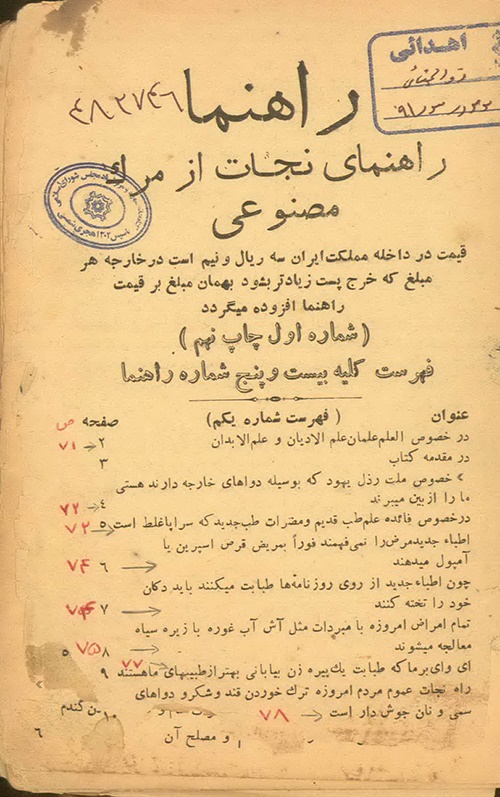 اهدائی
راهنما
۴۸۳۷۴۶
راهنمای نجات از مرك
مصنوعی
قیمت در داخله مملکت ایران سه ریال و نیم است در خارجه هر
مبلغ که خرج پست زیادتر بشود بهمان مبلغ بر قیمت
راهنما افزوده میگردد
( شماره اول چاپ نهم )
فهرست کلیه بیست و پنج شماره راهنما
عنوان ( فهرست شماره یکم ) صفحه ص
در خصوص العلم علمان علم الادیان و علم الابدان ۲ ۷۱
در مقدمه کتاب ۳
» خصوص ملت رذل یهود که بوسیله دواهای خارجه دارند هستی
ما را از بین میبرند ۴ ۷۲
درخصوص فائده علم طب قدیم و مضرات طب جدید که سراپا غلط است ۵ ۷۲
اطباء جدید مرض را نمی فهمند فوراً بمریض قرص اسپرین یا
آمپول میدهند ۶ ۷۴
چون اطباء جدید از روی روزنامه‌ها طبابت میکنند باید دکان
خود را تخته کنند ۷
تمام امراض امروزه با مبردات مثل آش آب غوره با زیره سیاه
معالجه میشوند ۸ ۷۵
ای وای برما که طبابت یك پیره زن بیابانی بهتر از طبیبهای ما هستند ۹ ۷۷
راه نجات عموم مردم امروزه ترك خوردن قند و شکر و دواهای
سمی و نان جوش دار است ۱۰ ۷۸
ن گندم
و مصلح آن ۶